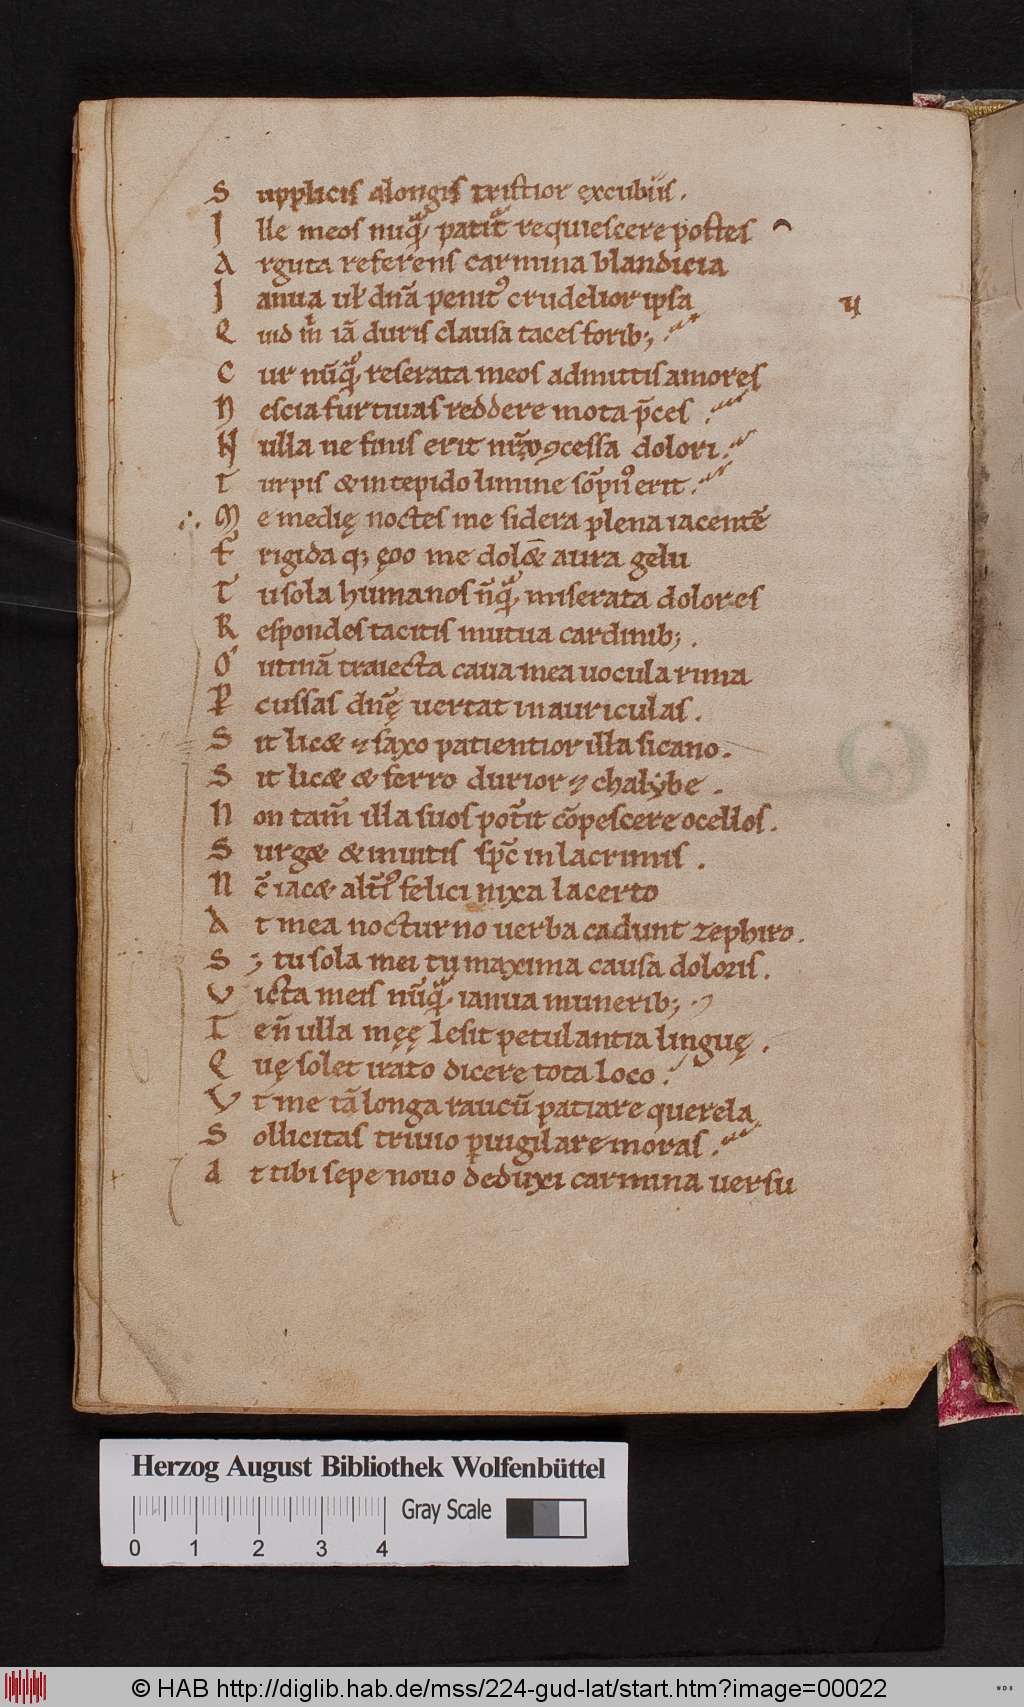 S upplicis alongis tristior excubiis.
I lle meos nūqͣ patit᷑ requiescere postes
A rguta referens carmina blandicia
I anua uł dnā penitꝰ crudelior ipsa
Q uid m̍ iā duris clausa taces forib;
C ur nūqͣ reserata meos admittis amores
N escia furtiuas reddere mota p̄ces
N ulla ne finis erit ꝯcessa dolori
T urpis & intepido limine sōpnꝰ erit
M e medię noctes me sidera plena iacentē
F rigida q; ęoo me dol& aura gelu
T u sola humanos nūqͣ miserata dolores
R espondes tacitis mutua cardinib;.
O utinā traiecta caua mea uocula rima
P̱ cussas dnę̄ uertat inauriculas.
S it lic& ⁊ saxo patientior illa sicano.
S it lic& & ferro durior ⁊ chalẏbe.
N on tam̄ illa suos pot̄it cōpescere ocellos.
S urg& & inuitis sp̄c inlacrimis.
N c̄ iac& alt̄iꝰ felici nixa lacerto
A t mea nocturno uerba cadunt zephiro.
S ; tu sola mei tu maxima causa doloris.
V icta meis nūqͣ ianua munerib;
T en̄ ulla męę lesit petulantia linguę.
Q uę solet irato dicere tota loco.
V t me tā longa raucū patiare querela
S ollicitas triuuo ꝑuigilare moras.
A t tibi sepe nouo deduxi carmina uersu
Herzog August Bibliothek Wolfenbüttel
Gray Scale
0 1 2 3 4
© HAB http://diglib.hab.de/mss/224-gud-lat/start.htm?image=00022